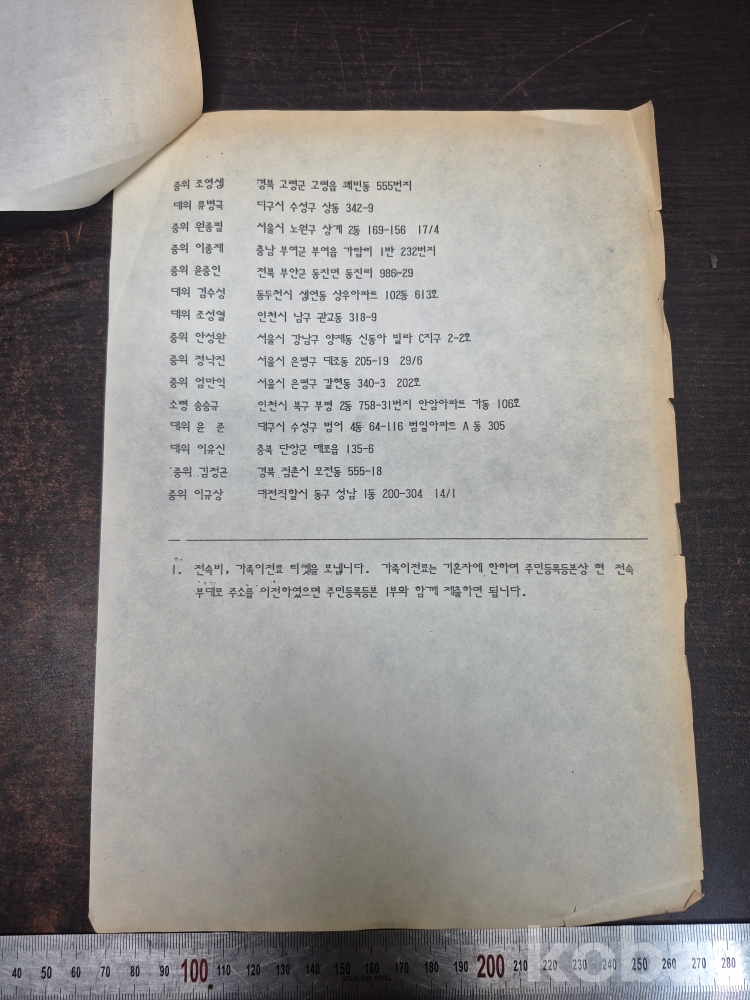 중위 조영생 경북 고령군 고령읍 쾌빈동 555번지
대위 류병국 대구시 수성구 상동 342-9
중위 원종필 서울시 노원구 상계 2동 169-156 17/4
중위 이종재 충남 부여군 부여읍 가탑리 1반 232번지
중위 윤중인 전북 부안군 동진면 동진리 986-29
대위 김수성 동두천시 생연동 상우아파트 102동 613호
대위 조성열 인천시 남구 관교동 318-9
중위 안성완 서울시 강남구 양재동 신동아 빌라 C지구 2-2호
중위 정낙진 서울시 은평구 대조동 205-19 29/6
중위 엄만익 서울시 은평구 갈현동 340-3 202호
소령 송승규 인천시 북구 부평 2동 758-31번지 안암아파트 가동 106호
대위 윤 준 대구시 수성구 범어 4동 64-116 범일아파트 A 동 305
대위 이유신 충북 단양군 매포읍 135-6
중위 김정근 경북 점촌시 모전동 555-18
중위 이규상 대전직할시 동구 성남 1동 200-304 14/1
1. 전속비, 가족이전료 티켓을 보냅니다. 가족이전료는 기혼자에 한하며 주민등록등본상 현 전속
부대로 주소를 이전하였으면 주민등록등본 1부와 함께 제출하면 됩니다.
40 50 60 70 80 90 100 110 120 130 140 150 160 170 180 190 200 210 220 230 240 250 260 270 280
STAINLESS STEEL